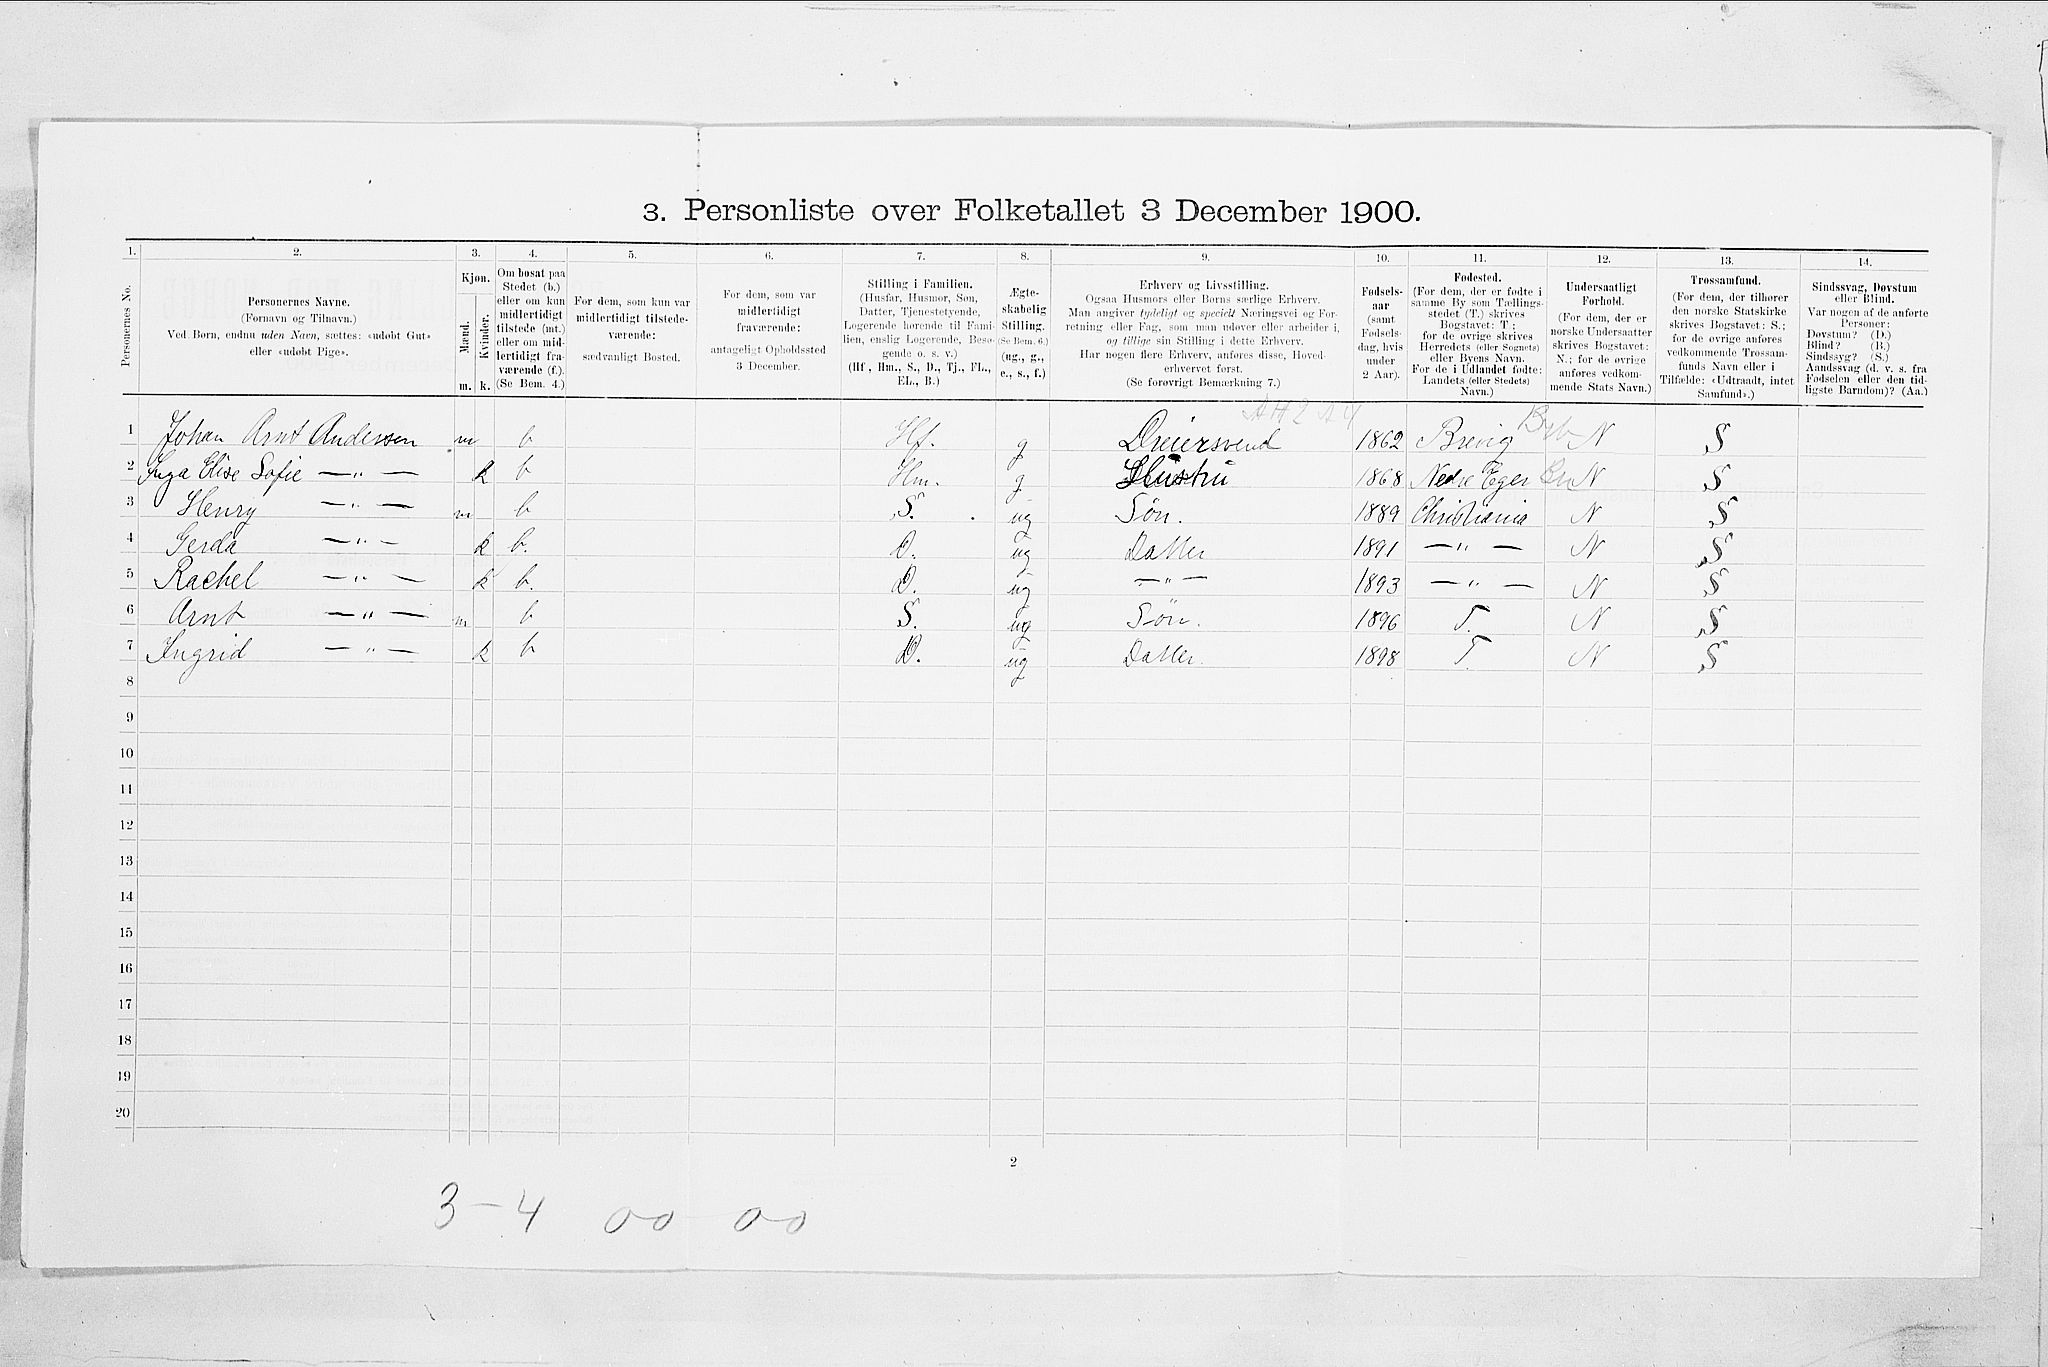 3. Personliste over Folketallet 3 December 1900.
1. 2. 3. 4. 5. 6. 7. 8. 9. 10. 11. 12. 13. 14.
Personernes No.
Personernes Navne.
(Fornavn og Tilnavn.)
Ved Børn, endnu uden Navn, sættes: «udøbt Gut»
eller «udøbt Pige».
Kjøn.
Mænd.
Kvinder.
m. k.
Om bosat paa
Stedet (b.)
eller om kun
midlertidigt
tilstede (mt.)
eller om mid-
lertidigt fra-
værende (f.).
(Se Bem. 4.)
For dem, som kun var
midlertidigt tilstede-
værende:
sædvanligt Bosted.
For dem, som var
midlertidigt
fraværende:
antageligt Opholdssted
3 December.
Stilling i Familien.
(Husfar, Husmor, Søn,
Datter, Tjenestetyende,
Logerende hørende til Fami-
lien, enslig Logerende, Besø-
gende o. s. v.)
(Hf, Hm., S., D., Tj., FL.,
EL., B.)
Ægte-
skabelig
Stilling.
(Se Bem. 6.)
(ug., g.,
e., s., f.)
Erhverv og Livsstilling.
Ogsaa Husmors eller Børns særlige Erhverv.
Man angiver tydeligt og specielt Næringsvei og For-
retning eller Fag, som man udøver eller arbeider i,
og tillige sin Stilling i dette Erhverv.
Har nogen flere Erhverv, anføres disse, Hoved-
erhvervet først.
(Se forøvrigt Bemærkning 7.)
Fødsels-
aar
(samt
Fødsels-
dag, hvis
under
2 Aar).
Fødested.
(For dem, der er fødte i
samme By som Tællings-
stedet (T.) skrives
Bogstavet: T;
for de øvrige skrives
Herredets (eller Sognets)
eller Byens Navn.
For de i Udlandet fødte:
Landets (eller Stedets)
Navn.)
Undersaatligt
Forhold.
(For dem, der er
norske Undersaatter
skrives Bogstavet:
N.; for de øvrige
anføres vedkom-
mende Stats Navn.)
Trossamfund.
(For dem, der tilhører
den norske Statskirke
skrives Bogstavet: S.;
for de øvrige anføres
vedkommende Trossam-
funds Navn eller i
Tilfælde: «Udtraadt, intet
Samfund».)
Sindssvag, Døvstum
eller Blind.
Var nogen af de anførte
Personer:
Døvstum? (D.)
Blind? (B.)
Sindssyg? (S.)
Aandssvag (d. v. s. fra
Fødselen eller den tid-
ligste Barndom)? (Aa.)
1 Johan Arnt Andersen m b Hf. g Dreiersvend 1862 Brevig N S
2 Inga Elise Sofie —"— k b Hm. g Hustru 1868 Nedre Eger N S
3 Henry —"— m b S. ug Søn. 1889 Christiania N S
4 Gerda —"— k b. D. ug Datter 1891 —"— N S
5 Rachel —"— k b. D. ug —"— 1893 —"— N S
6 Arnt —"— m b S. ug Søn. 1896 T. N S
7 Ingrid —"— k b D. ug Datter. 1898 T N S
8
9
10
11
12
13
14
15
16
17
18
19
20
2
3-4 00 00